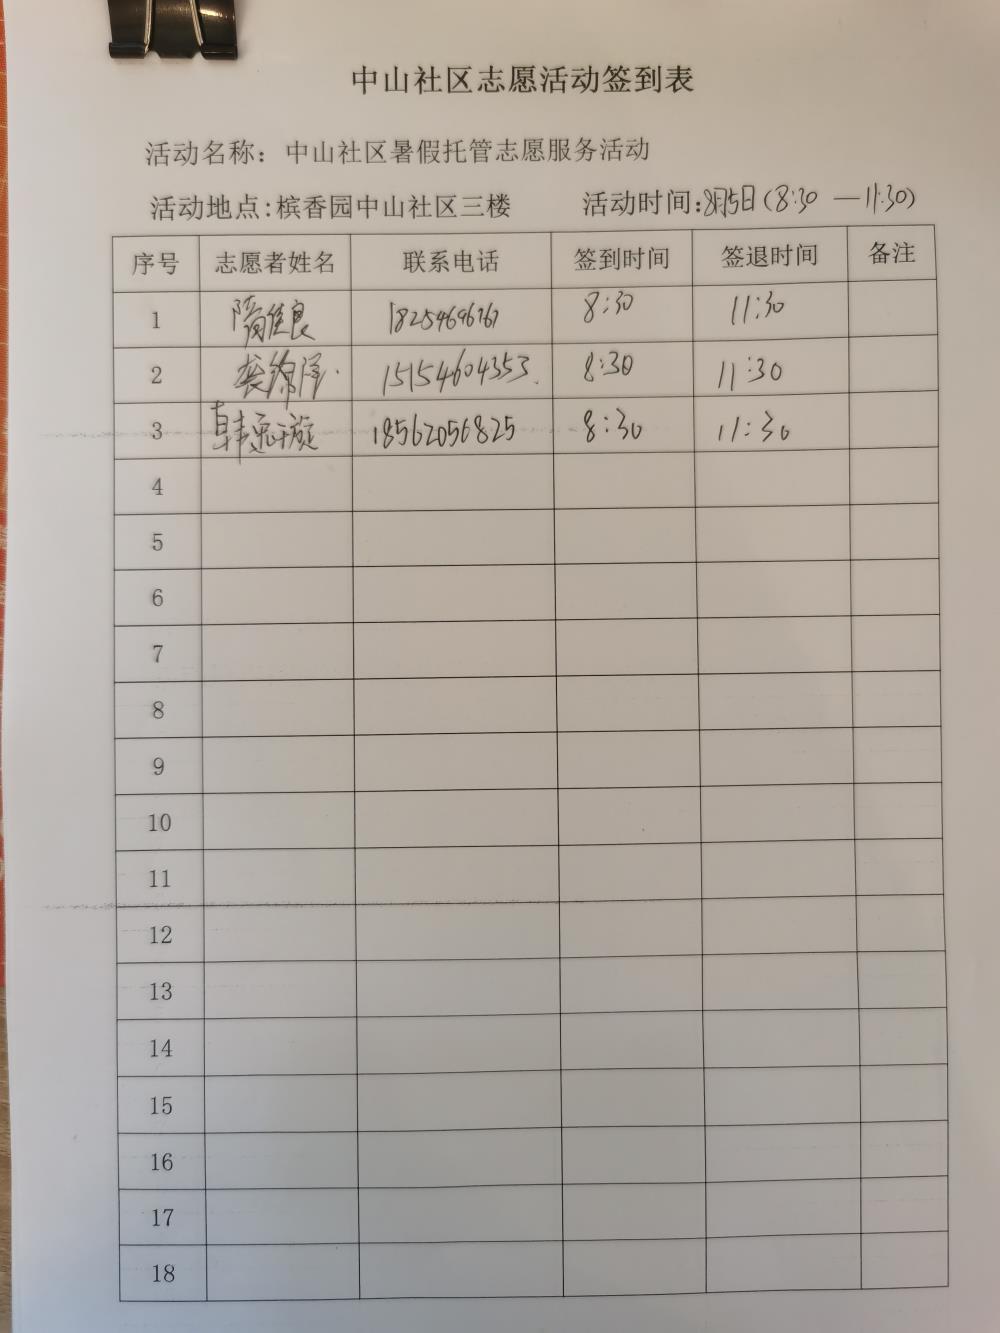 中山社区志愿活动签到表
活动名称：中山社区暑假托管志愿服务活动
活动地点:槟香园中山社区三楼 活动时间:8月5日(8:30 —11:30)
序号 志愿者姓名 联系电话 签到时间 签退时间 备注
1 隋佳良 18254696767 8:30 11:30
2 15154604353 8:30 11:30
3 韩 旋 18562056825 8:30 11:30
4
5
6
7
8
9
10
11
12
13
14
15
16
17
18